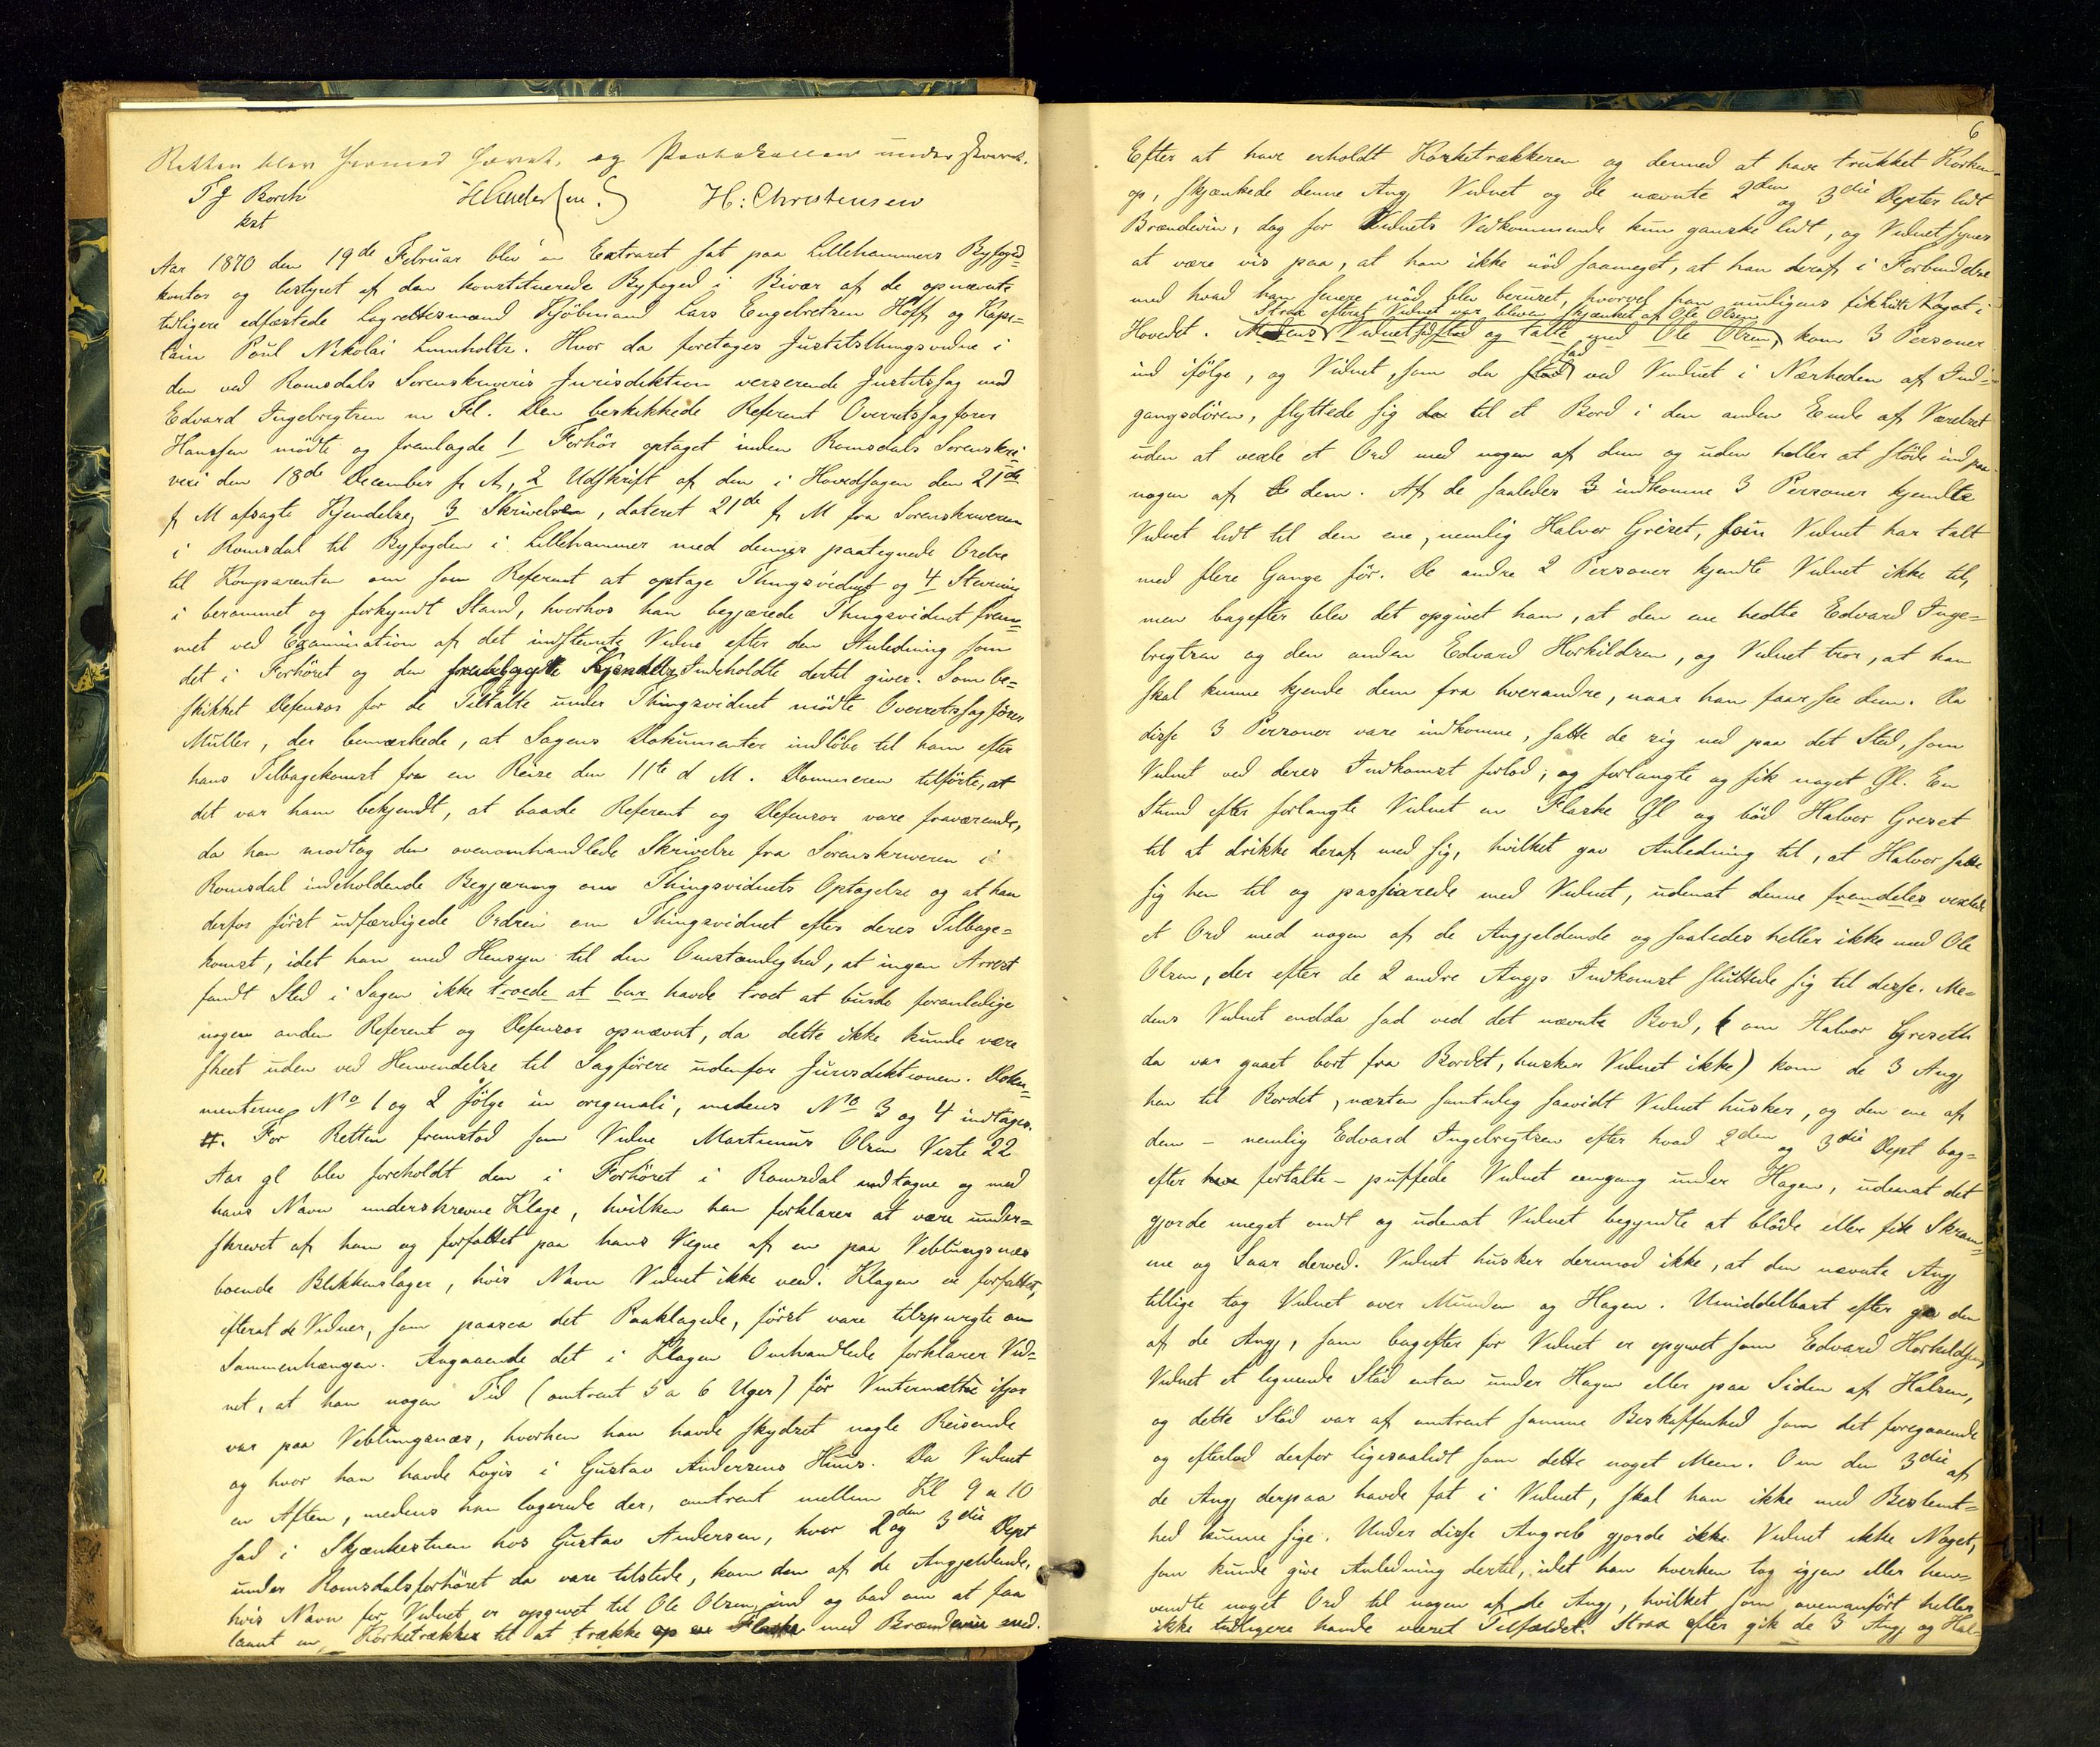 Retten blev hermed hævet, og Protokollen underskrevet.
T J Borch H: Christensen
kst
Aar 1870 den 19de Februar blev en Extraret sat paa Lillehammers Byfoged=
kontor og bestyret af den konstituerede Byfoged i Bivær af de opnævnte
tidligere edfæstede Lagrettesmænd Kjöbmand Lars Engebretsen Hoff og Kape=
lain Poul Nikolai Lumholtz. Hvor da foretoges Justitsthingsvidne i
den ved Romsdals Sorenskriveris Jurisdiktion verserende Justitssag mod
Edvard Ingebrigtsen m Fl. Den beskikkede Referent Overretssagförer
Hanssen mödte og fremlagde 1 Forhör optaget inden Romsdals Sorenskri=
veri den 18de December f A, 2 Udskrift af den i Hovedsagen den 21de
f M afsagte Kjendelse, 3 Skrivelse, dateret 21de f M fra Sorenskriveren
i Romsdal til Byfogden i Lillehammer med dennes paategnede Ordre
til Komparenten om som Referent at optage Thingsvidnet og 4 Stævning
i berammet og forkyndt Stand, hvorhos han begjærede Thingsvidnet frem=
met ved Examination af det indstevnte Vidne efter den Anledning som
det i Forhöret og den fremlagte Kjendelse Indeholdte dertil giver. Som be=
skikket Defensor for de Tiltalte under Thingsvidnet mödte Overretssagförer
Müller, der bemærkede, at Sagens Dokumenter indlöbe til ham efter
hans Tilbagekomst fra en Reise den 11te d M. Dommeren tilförte, at
det var ham bekjendt, at baade Referent og Defensor vare fraværende,
da han modtog den ovenomhandlede Skrivelse fra Sorenskriveren i
Romsdal indeholdende Begjæring om Thingsvidnets Optagelse og at han
derfor först udfærdigede Ordren om Thingsvidnet efter deres Tilbage=
komst, idet han med Hensyn til den Omstændighed, at ingen Arrest
fandt Sted i Sagen ikke troede at bur havde troet at burde foranledige
nogen anden Referent og Defensor opnævnt, da dette ikke kunde være
skeet uden ved Henvendelse til Sagförere udenfor Jurisdiktionen. Doku=
menterne No 1 og 2 fölge in originali, medens No 3 og 4 indtages.
#. For Retten fremstod som Vidne Martinus Olsen Viste 22
Aar gl blev foreholdt den i Forhöret i Romsdal indtagne og med
hans Navn underskrevne Klage, hvilken han forklarer at være under=
skrevet af ham og forfattet paa hans Vegne af en paa Veblungsnæs
boende Blikkenslager, hvis Navn Vidnet ikke veed. Klagen er forfattet,
efterat de Vidner, som paasaa det Paaklagede, först vare tilspurgte om
Sammenhængen. Angaaende det i Klagen Omhandlede forklarer Vid=
net, at han nogen Tid (omtrent 5 a 6 Uger) för Vinternætte ifjor
var paa Veblungsnæs, hvorhen han havde skydset nogle Reisende
og hvor han havde Logis i Gustav Andersens Huus. Da Vidnet
en Aften, medens han logerede der, omtrent mellem Kl 9 a 10
sad i Skjænkestuen hos Gustav Andersen, hvor 2den og 3die Dept
under Romsdalsforhöret da vare tilstede, kom den af de Angjeldende,
hvis Navn for Vidnet er opgivet til Ole Olsen, ind og bad om at faa
laant en Korketrækker til at trække op en Flaske med Brændeviin med.
6
Efter at have erholdt Korketrækkeren og dermed at have trukket Korken
op, skjænkede denne Ang Vidnet og de nævnte 2den og 3die Depter lidt
Brændeviin, dog for Vidnets Vedkommende kun ganske lidt, og Vidnet synes
at være vis paa, at han ikke nöd saameget, at han deraf i Forbindelse
med hvad han senere nöd blev beruset, hvorvel han muligens fik lidt Roget i
Strax efterat Vidnet var bleven skjænket af Ole Olsen
Hovedet. Medens Vidnet sad og talte med Ole Olsen, kom 3 Personer
ind ifölge, og Vidnet, som da stod sad ved Vinduet i Nærheden af Ind=
gangsdören, flyttede sig da til et Bord i den anden Ende af Værelset
uden at vexle et Ord med nogen af dem og uden heller at stöde ind paa
nogen af de dem. Af de saaledes 3 indkomne 3 Personer kjendte
Vidnet lidt til den ene, nemlig Halvor Griset, som Vidnet har talt
med flere Gange för. De andre 2 Personer kjendte Vidnet ikke til,
men bagefter blev det opgivet ham, at den ene hedte Edvard Inge=
brigtsen og den anden Edvard Horkildsen, og Vidnet tror, at han
skal kunne kjende dem fra hverandre, naar han faar see dem. Da
disse 3 Personer vare indkomne, satte de sig ned paa det Sted, som
Vidnet ved deres Indkomst forlod, og forlangte og fik noget Öl. En
Stund efter forlangte Vidnet en Flaske Öl og böd Halvor Griset
til at drikke deraf med sig, hvilket gav Anledning til, at Halvor satte
sig hen til og passiarede med Vidnet, udenat denne fremdeles vexlede
et Ord med nogen af de Angjeldende og saaledes heller ikke med Ole
Olsen, der efter de 2 andre Angjs Indkomst sluttede sig til disse. Me=
dens Vidnet endda sad ved det nævnte Bord, (om Halvor Griseth
da var gaaet bort fra Bordet, husker Vidnet ikke) kom de 3 Angj
hen til Bordet, næsten samtidig saavidt Vidnet husker, og den ene af
dem - nemlig Edvard Ingebrigtsen efter hvad 2den og 3die Dept bag=
efter har fortalte - puffede Vidnet eengang under Hagen, udenat det
gjorde meget ondt og udenat Vidnet begyndte at blöde eller fik Skram=
me og Saar derved. Vidnet husker derimod ikke, at den nævnte Angj
tillige tog Vidnet over Munden og Hagen. Umiddelbart efter ga den
af de Angj, som bagefter for Vidnet er opgivet som Edvard Horkildsen,
Vidnet et lignende Stöd enten under Hagen eller paa Siden af Halsen,
og dette Stöd var af omtrent samme Beskaffenhed som det foregaaende
og efterlod derfor ligesaalidt som dette noget Meen. Om den 3die af
de Angj derpaa havde fat i Vidnet, skal han ikke med Bestemt=
hed kunne sige. Under disse Angreb gjorde ikke Vidnet ikke Noget,
som kunde give Anledning dertil, idet han hverken tog igjen eller hen=
vendte noget Ord til nogen af de Angj, hvilket som ovenanfört heller
ikke tidligere havde været Tilfældet. Strax efter gik de 3 Angj og Hal=